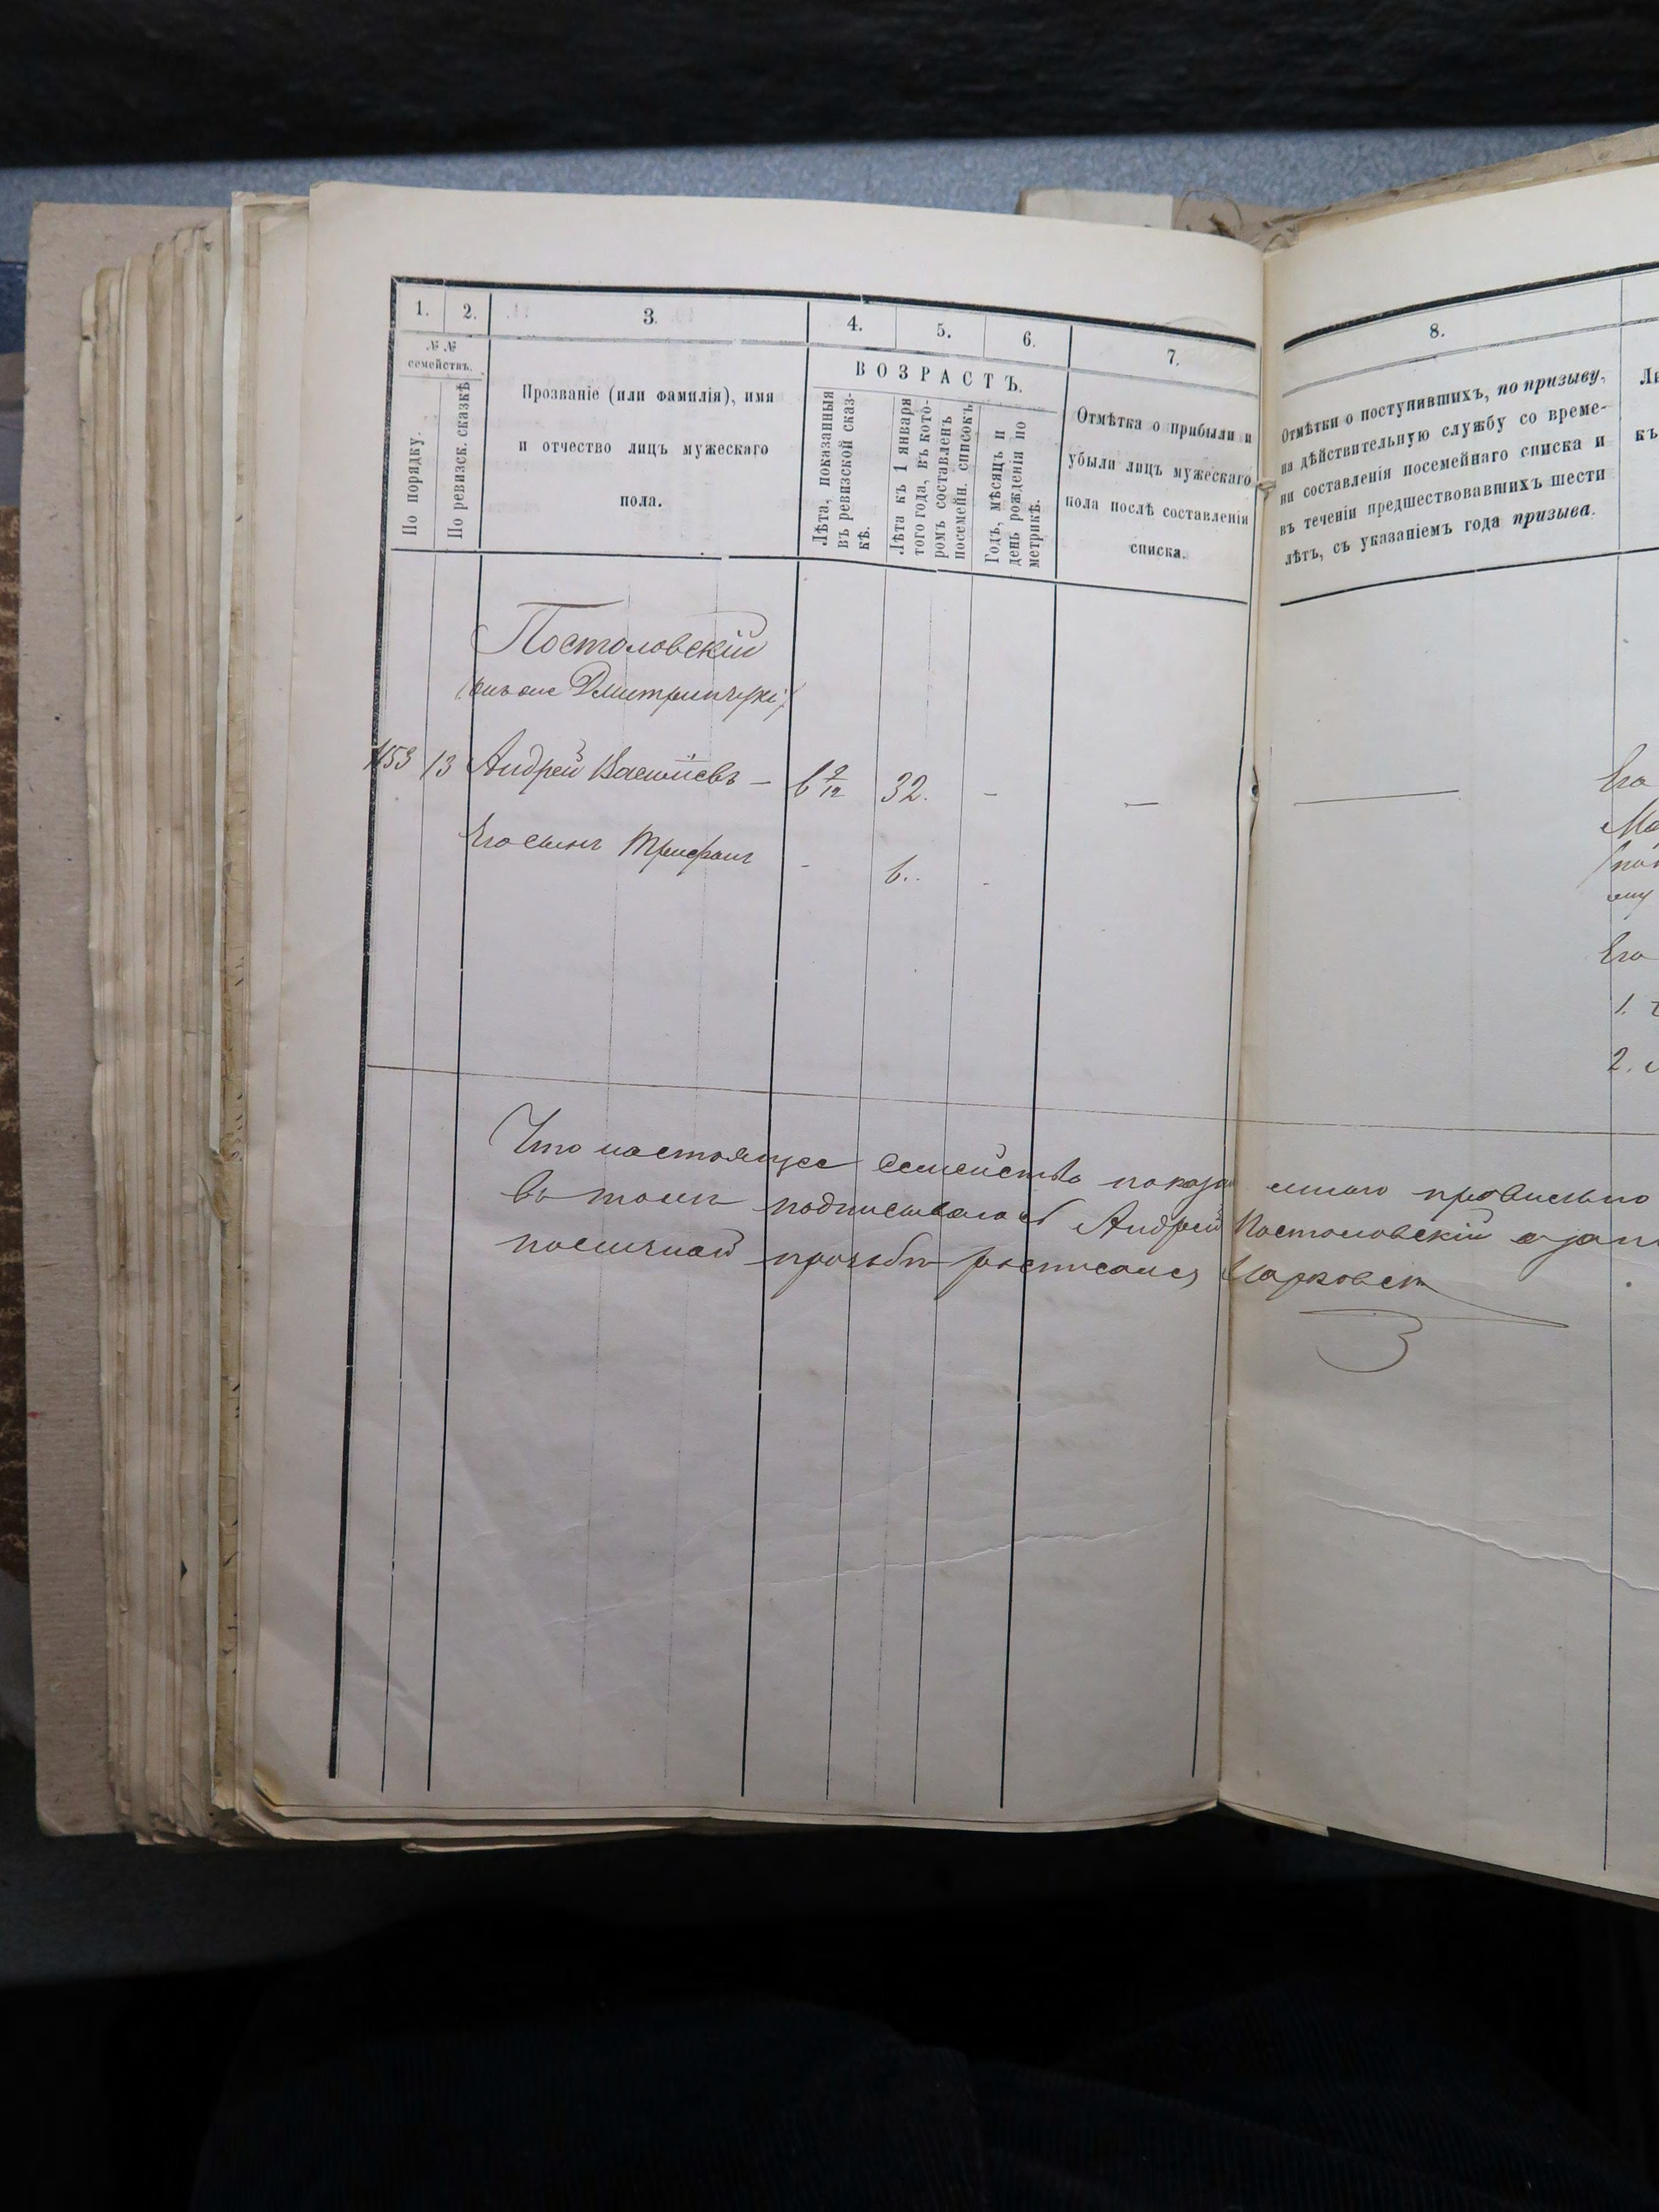 1. 2. 3. 4. 5. 6. 7.
№ №
семействъ.
По порядку.
По ревизск. сказкѣ
Прозваніе (или фамилія), имя
и отчество лицъ мужескаго
пола.
ВОЗРАСТЪ.
Лѣта, показанныя
въ ревизской сказ-
кѣ.
Лѣта къ 1 января
того года, въ кото-
ромъ составленъ
посемейн. списокъ
Годъ, мѣсяцъ и
день рожденія по
метрикѣ.
Отмѣтка о прибыли и
убыли лицъ мужескаго
пола послѣ составленія
списка.
Постоловскій
(онъ же
153 13 Андрей Васильевъ — 6 9/12 32. — —
Его сынъ Трифонъ - 6. -
Что настоящее семейство показано мною правильно
въ томъ подписываюсь Андрей Постоловскій а
по личной прозьбѣ росписался
8.
Отмѣтки о поступившихъ, по призыву,
на дѣйствительную службу со време-
ни составленія посемейнаго списка и
въ теченіи предшествовавшихъ шести
лѣтъ, съ указаніемъ года призыва.
къ
Его
Его
1.
2.